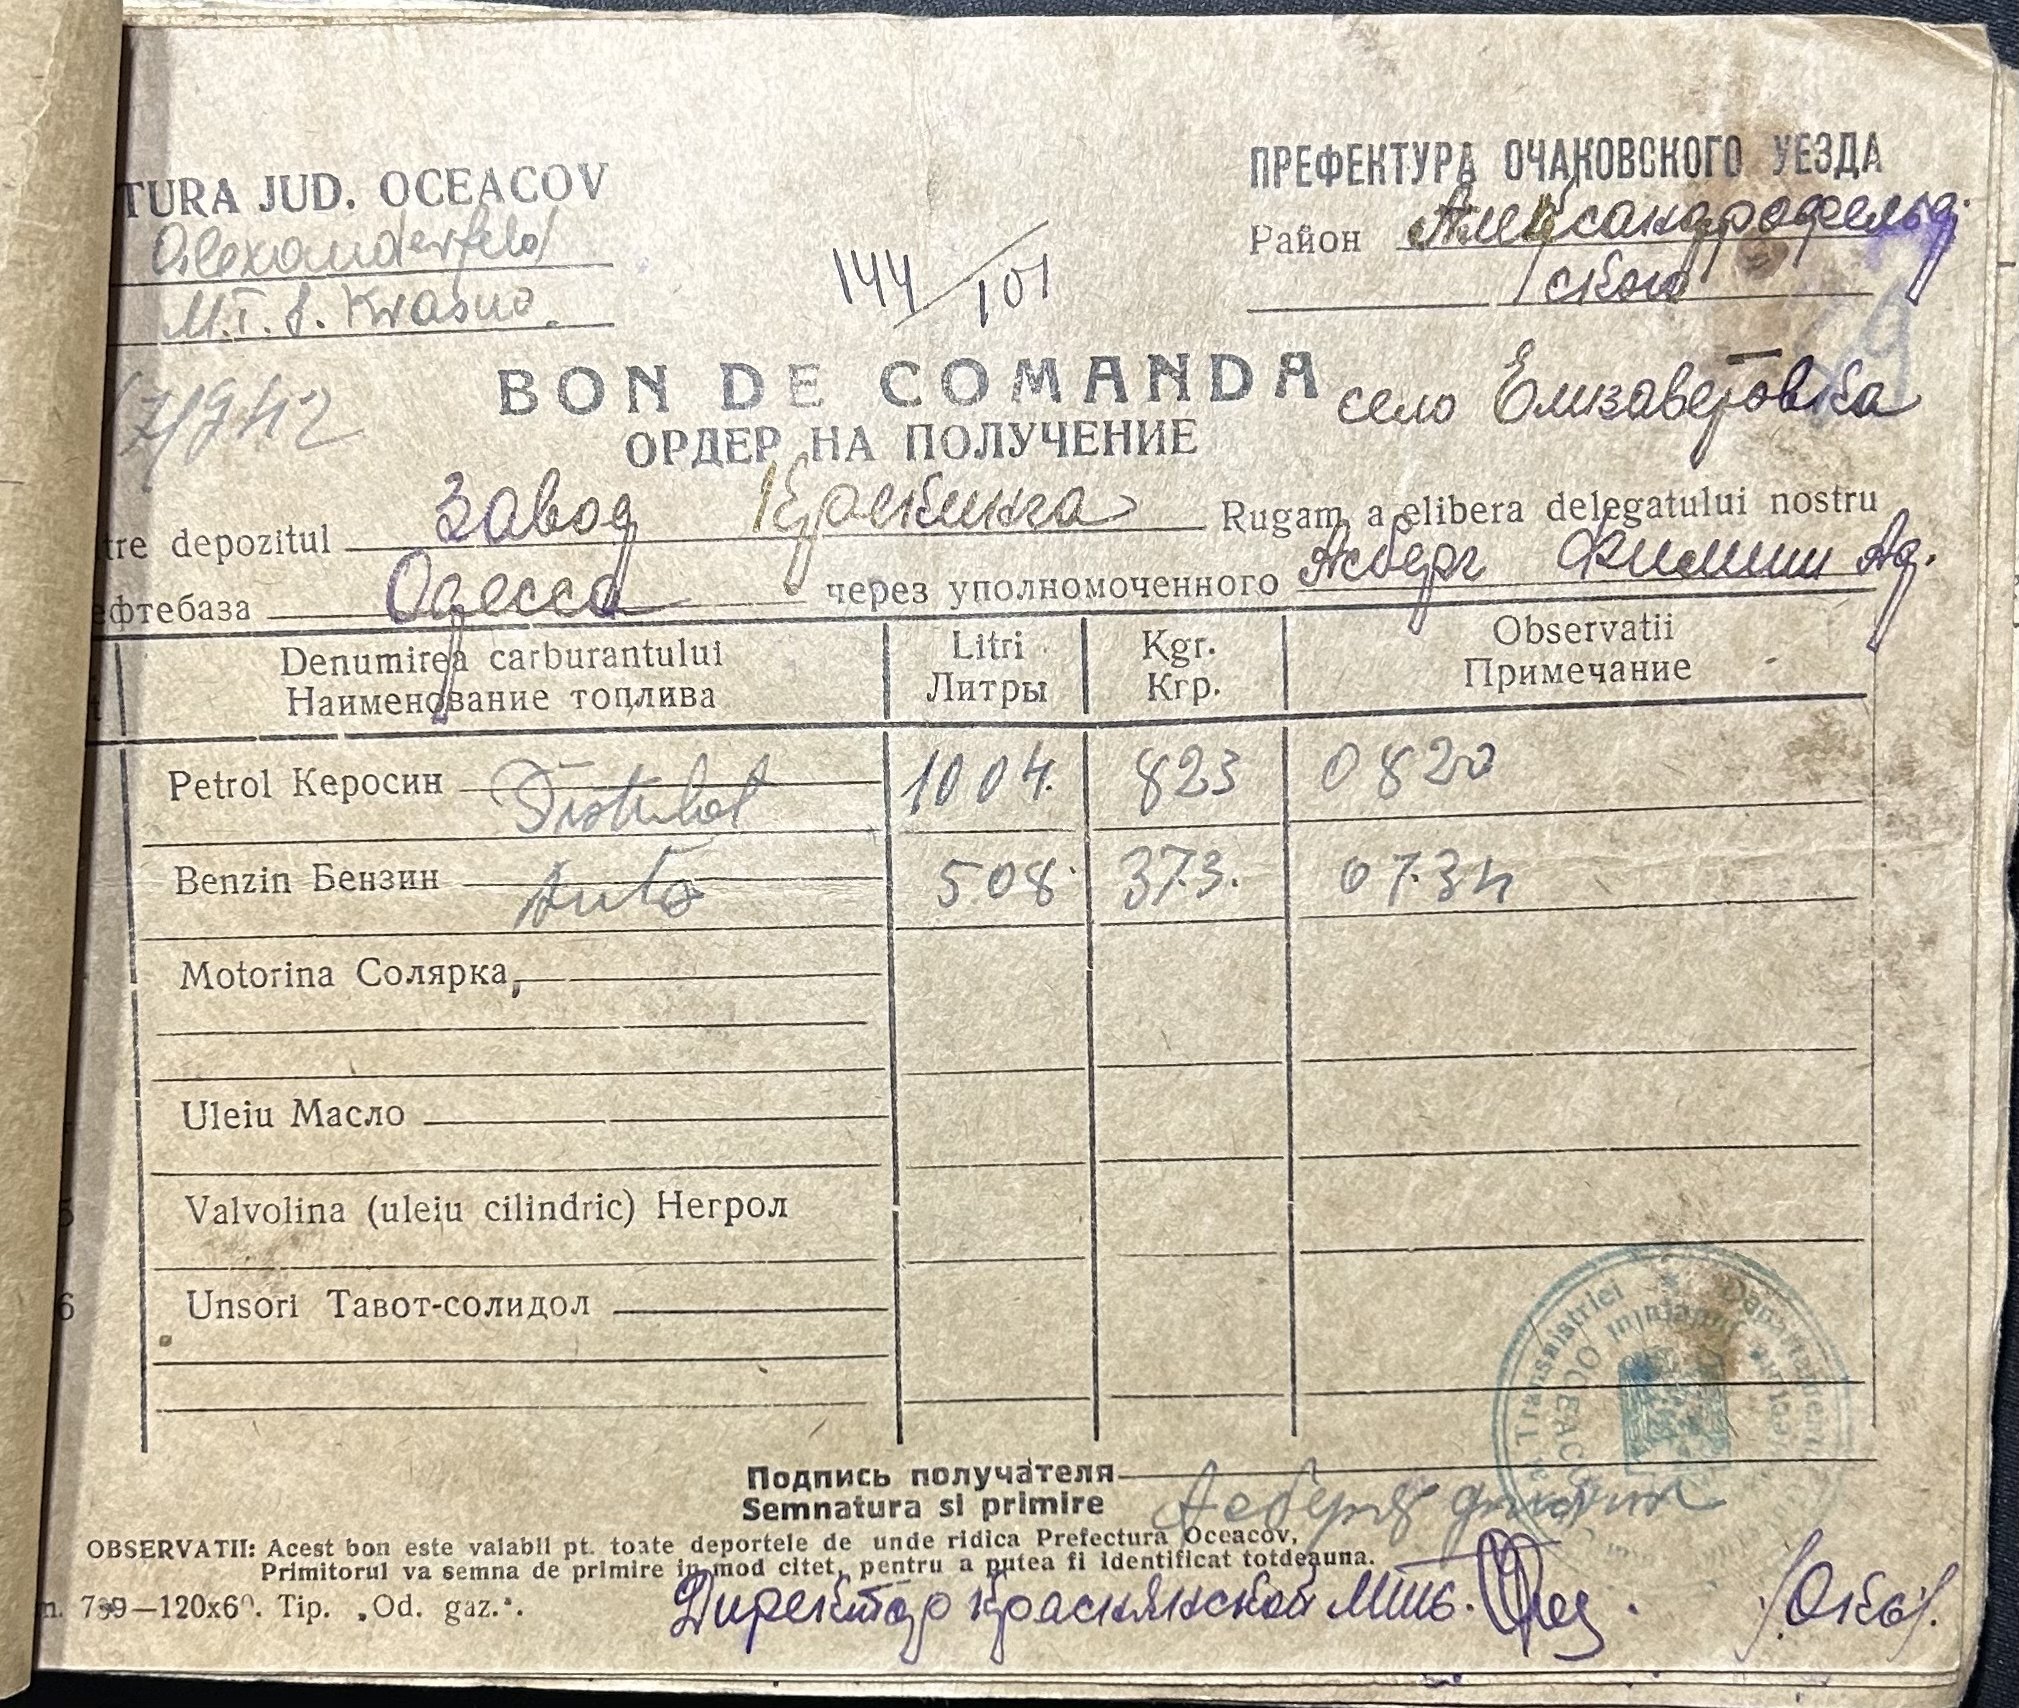 TURA JUD. OCEACOV
Alexanderfeld
M.T.S. Krasna.
ПРЕФЕКТУРА ОЧАКОВСКОГО УЕЗДА
Район Александрофельд.
ского
144/101
7/942
59
BON DE COMANDA
село Елизаветовка
ОРДЕР НА ПОЛУЧЕНИЕ
tre depozitul Завод Rugam a elibera delegatului nostru
фтебаза Одесса через уполномоченного Асберг Филипп Ад.
Denumirea carburantului Litri Kgr. Observatii
Наименование топлива Литры Кгр. Примечание
Petrol Керосин 1004. 823 0820
Benzin Бензин Auto 508. 373. 0734
Motorina Солярка,
Uleiu Масло
5 Valvolina (uleiu cilindric) Негрол
6 Unsori Тавот-солидол
Transnistriei
Judetului OCEACOV
Подпись получателя
Semnatura si primire Асберг Филипп
OBSERVATII: Acest bon este valabil pt. toate deportele de unde ridica Prefectura Oceacov,
Primitorul va semna de primire in mod citet, pentru a putea fi identificat totdeauna.
789—120x60. Tip. „Od. gaz.".
Директор Краснянской МТС.